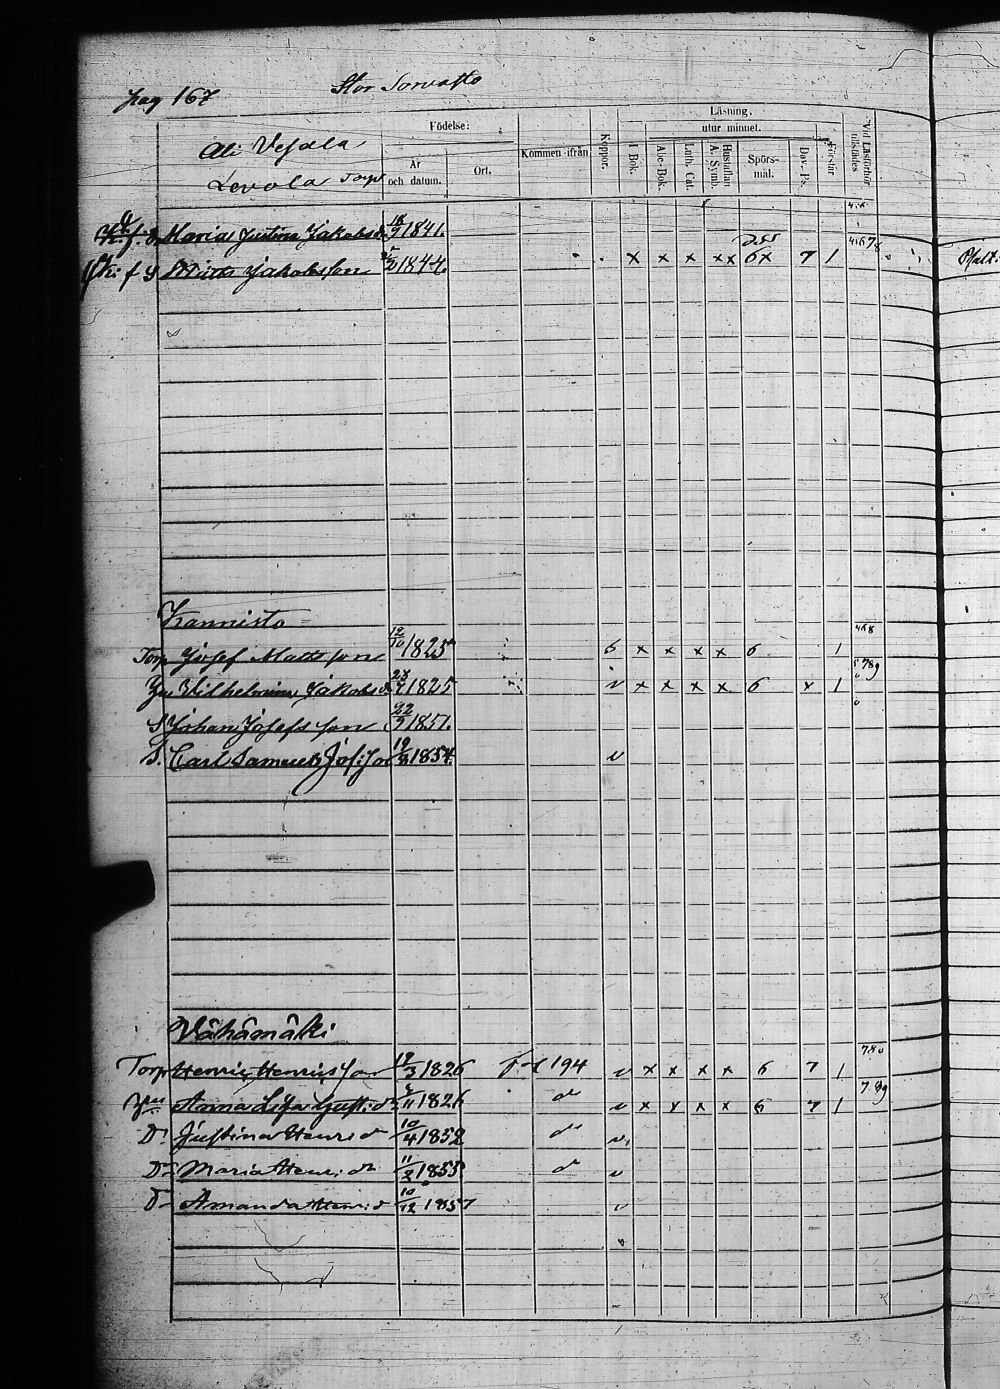 pag 167 Stor Sorvasto
Ali Vesala
Levola Torp
Födelse:
År och datum.
Ort.
Kommen ifrån
Koppor.
Läsning,
utur minnet.
I Bok.
Abc-Bok.
Luth. Cat.
Hustaflan A. Symb.
Spörs-mål.
Dav. Ps.
Förstår
Vid Läsförhör tillstädes
Maria Justina Jakobsd. 18/9 1841.
Jakobsson 1844. x x x xx 6x 7 1 45678
Kannisto
Torp Josef Mattsson 12/10 1825 6 x x x x 6 1 468
Hu Wilhelmina Jakobsd 23/4 1825 v x x x x 6 x 1 789
S Johan Josefsson 22/9 1851.
S. Carl Samuel Jos:son 19/8 1854. v
Vähämäki
Torp Henric Henricsson 12/3 1826 194 v x x x x 6 7 1 780
Hu Anna Lisa Gust:dr 1826 do v x x x x 6 7 1 789
Dr Justina Henr:dr 10/4 1852 do v
Dr Maria Henr:dr 1853 do v
Dr Amanda Henr:d 10/12 1857 v